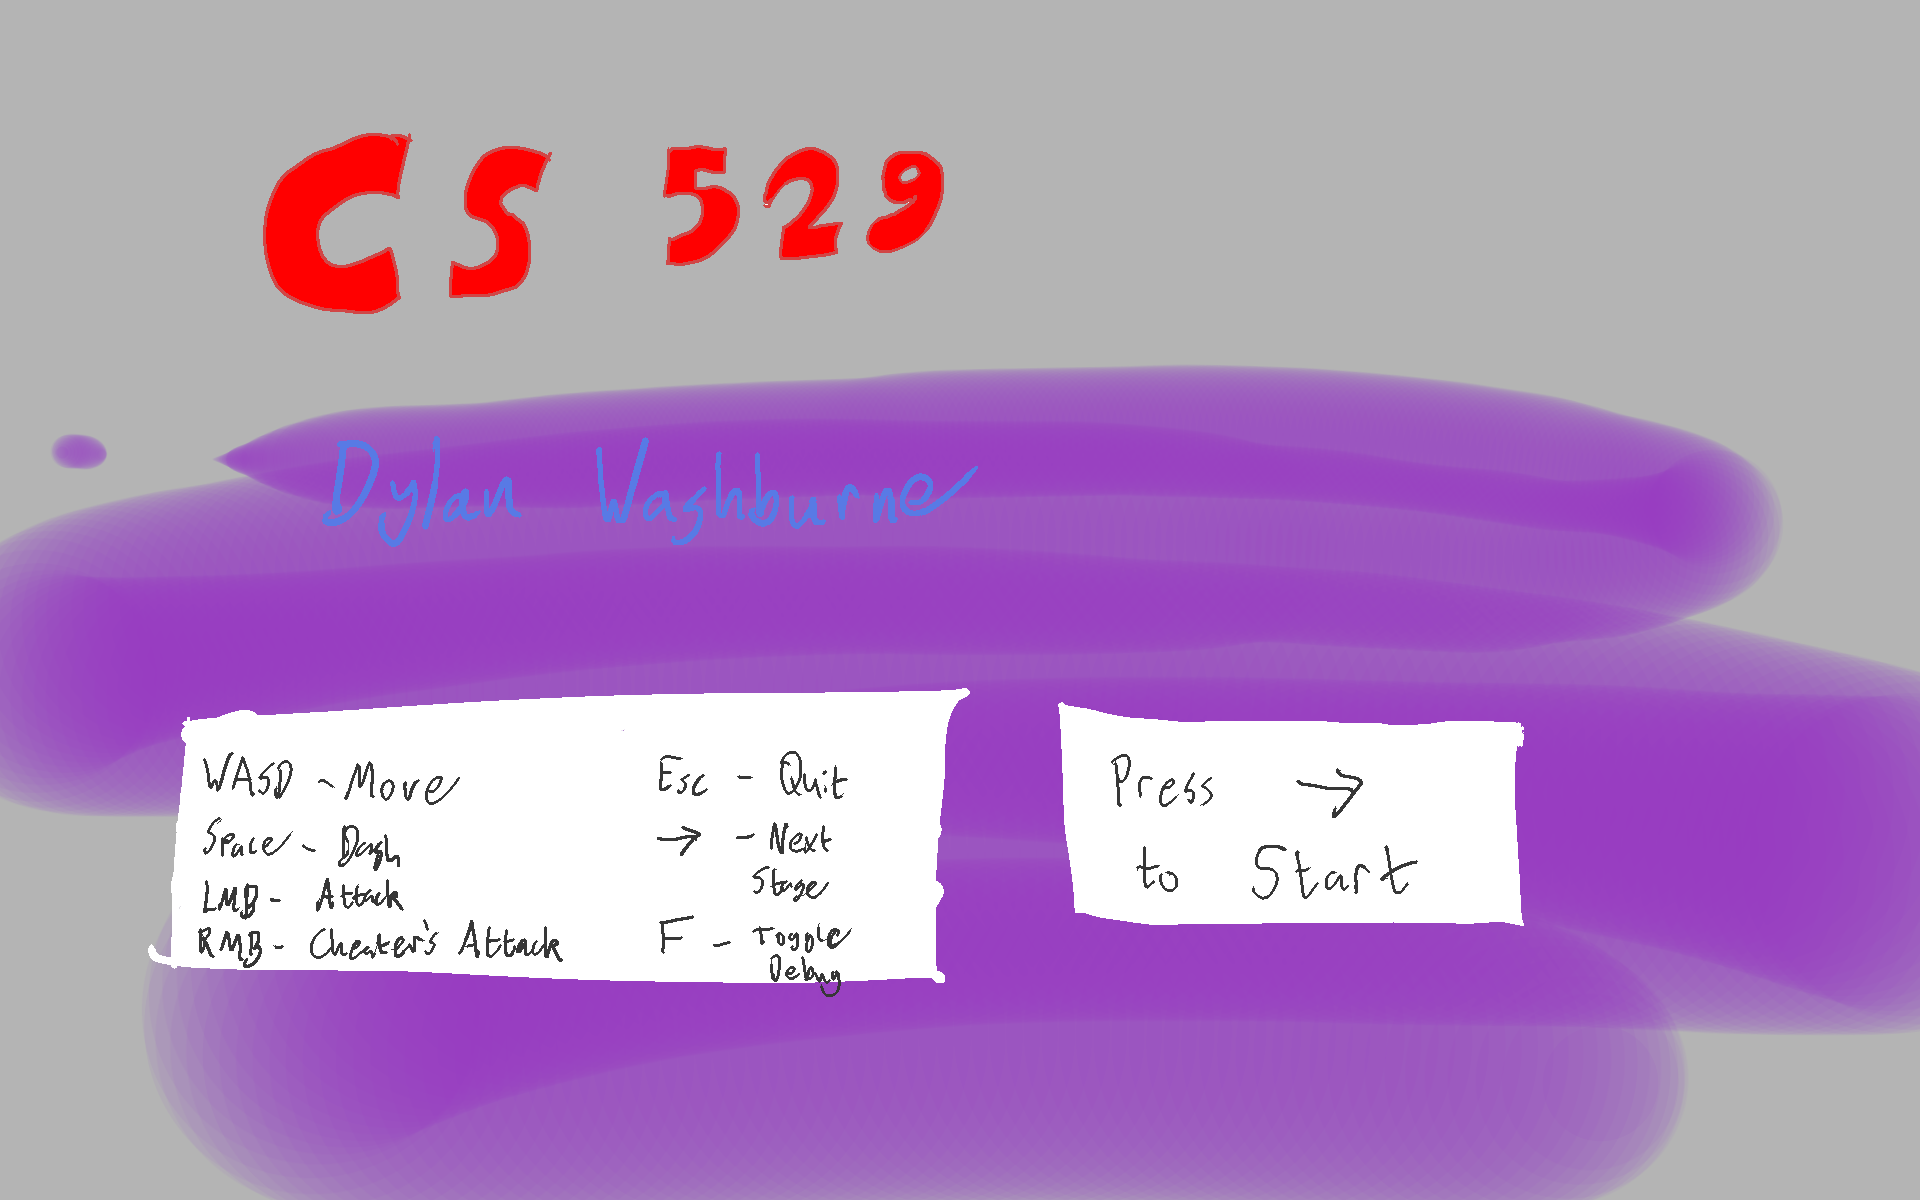 CS 529
Dylan Washburne
WASD - Move
Space - Dash
LMB - Attack
RMB - Cheater's Attack
Esc - Quit
→ - Next
Stage
F - Toggle
Debug
Press →
to Start